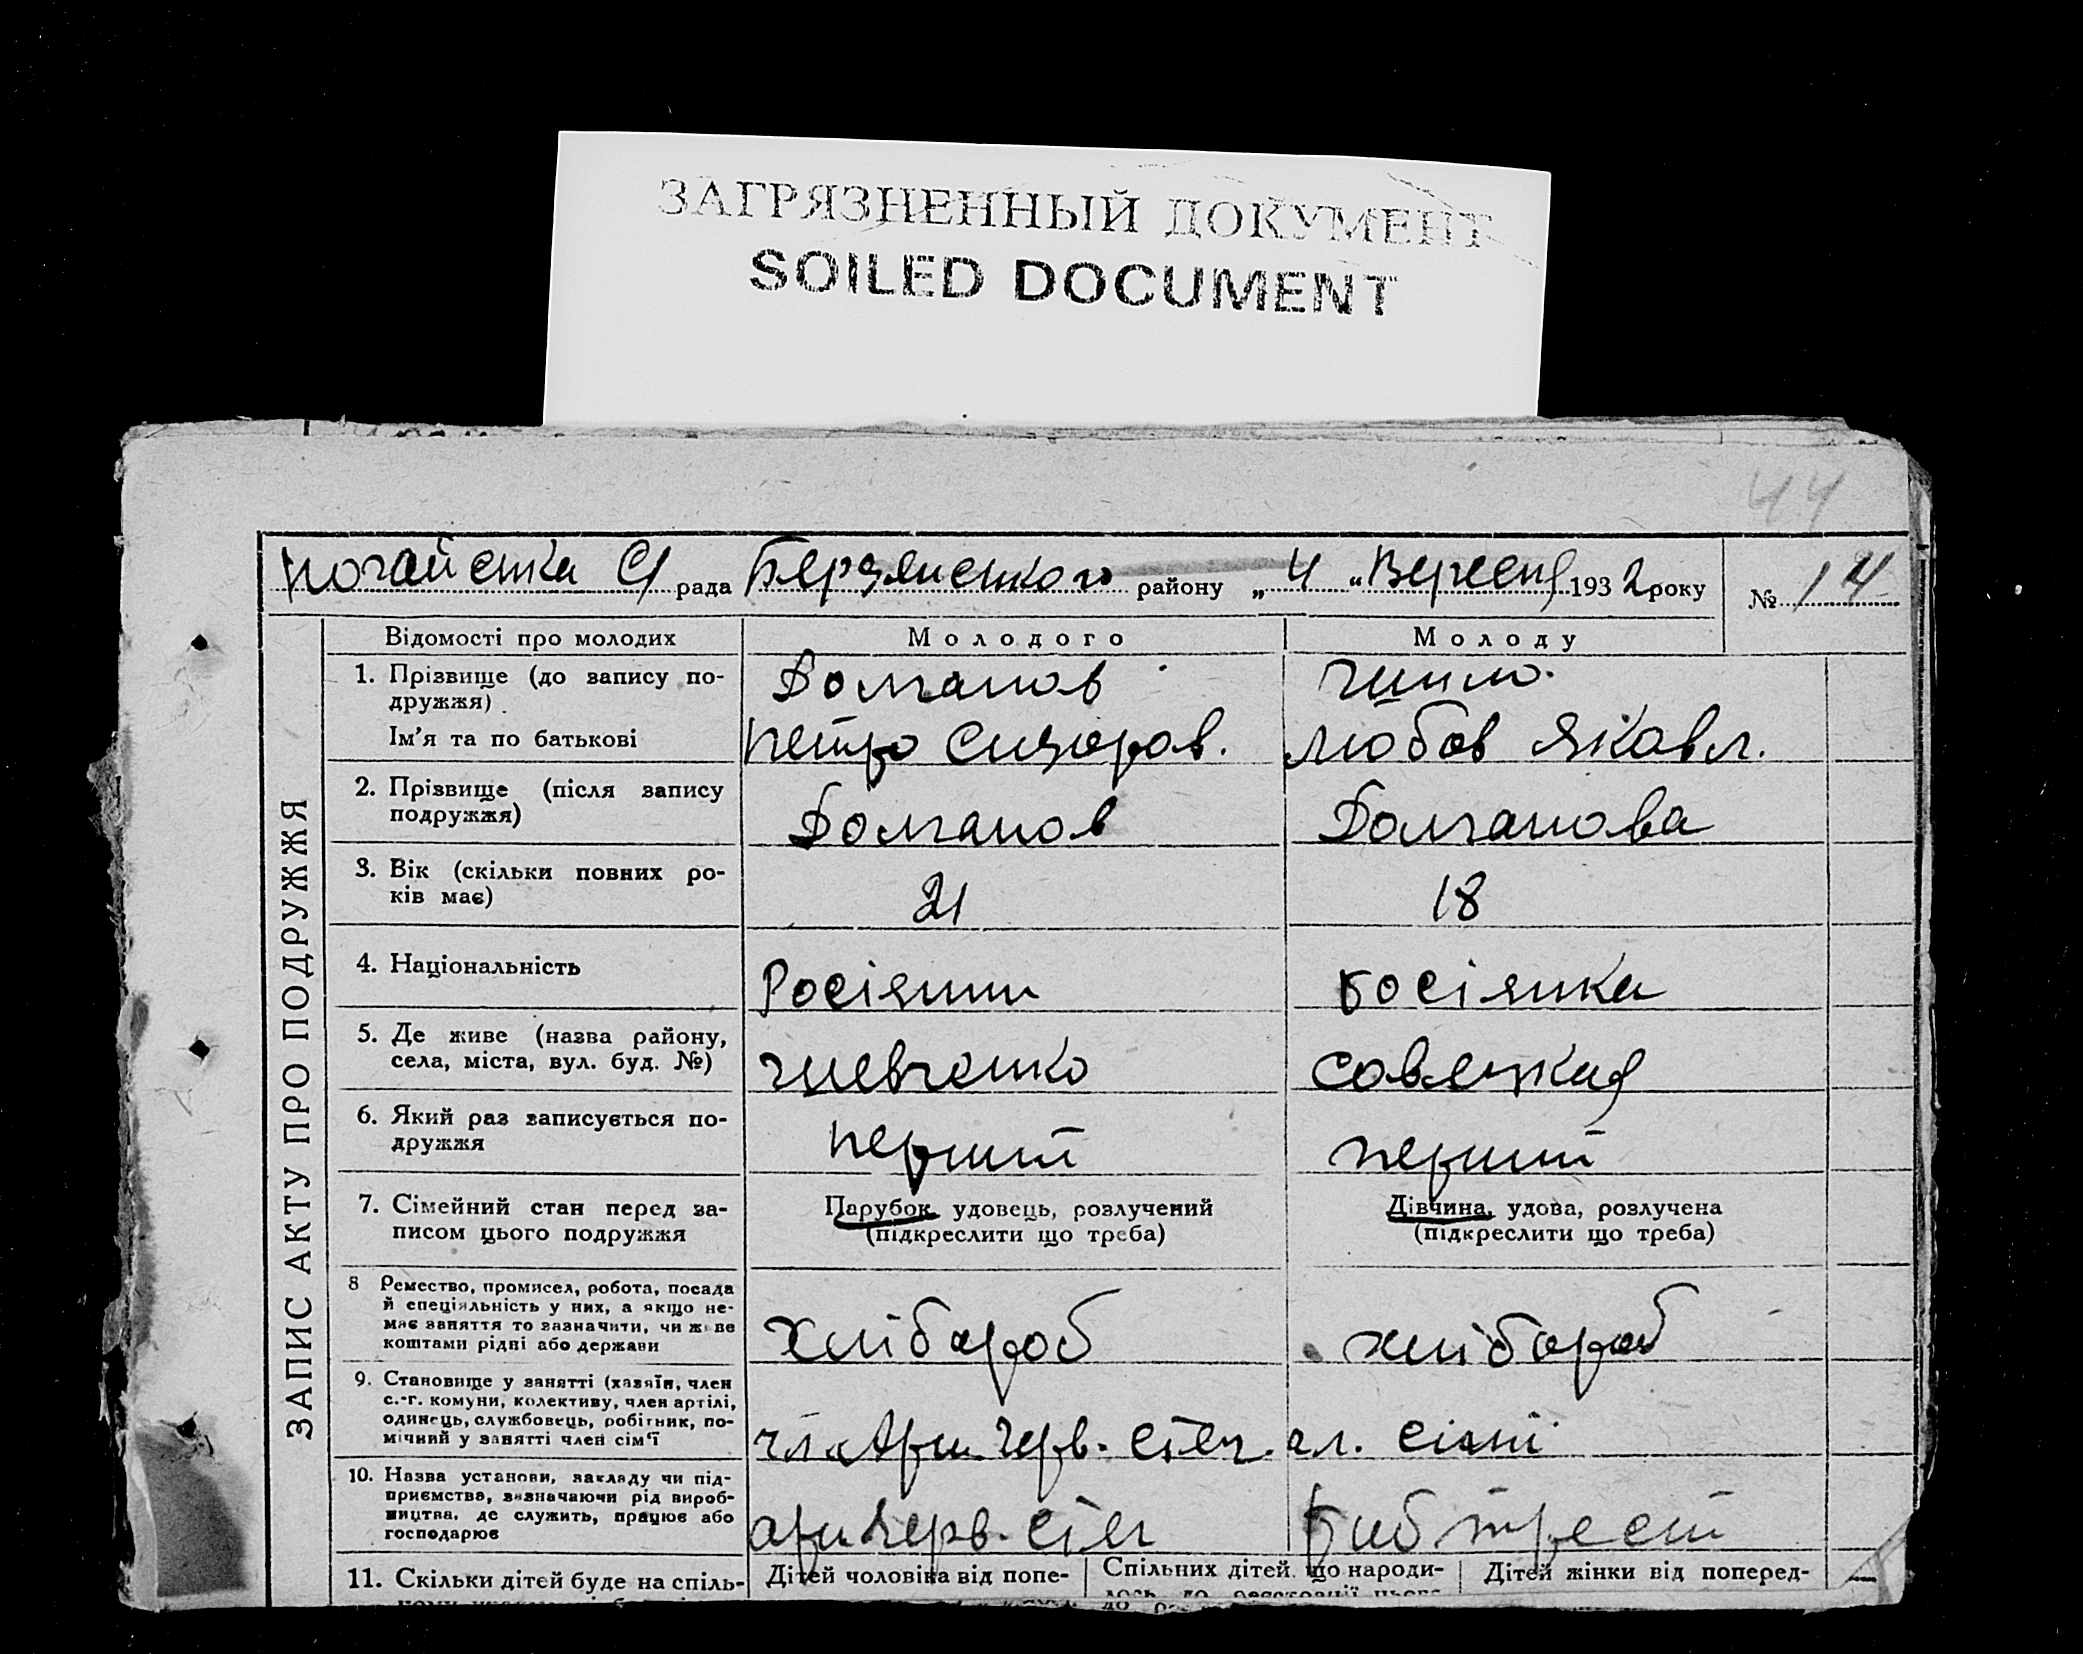 ЗАГРЯЗНЕННЫЙ ДОКУМЕНТ
SOILED DOCUMENT
44
Ногайська С/ рада Бердянського району „ 4 “ Вересня 1932 року № 14
ЗАПИС АКТУ ПРО ПОДРУЖЖЯ
Відомості про молодих Молодого Молоду
1. Прізвище (до запису по- Долганов
дружжя)
Ім'я та по батькові Петро Сидоров. Любов Яковл.
2. Прізвище (після запису Долганов Долганова
подружжя)
3. Вік (скільки повних ро- 21 18
ків має)
4. Національність Росіянин Росіянка
5. Де живе (назва району, Шевченко Совецкая
села, міста, вул. буд. №)
6. Який раз записується по- перший перший
дружжя
7. Сімейний стан перед за- Парубок, удовець, розлучений Дівчина, удова, розлучена
писом цього подружжя (підкреслити що треба) (підкреслити що треба)
8 Ремество, промисел, робота, посада
й спеціяльність у них, а якщо не-
має заняття то зазначити, чи живе хлібороб хлібороб
коштами рідні або держави
9. Становище у занятті (хазяїн, член
с.-г. комуни, колективу, член артілі,
одинець, службовець, робітник, по- Черв. чл. сімї
мічний у занятті член сім'ї
10. Назва установи, закладу чи під-
приємства, зазначаючи рід вироб-
ництва, де служить, працює або Черв.
господарює
11. Скільки дітей буде на спіль- Дітей чоловіка від попе- Спільних дітей, що народи- Дітей жінки від поперед-